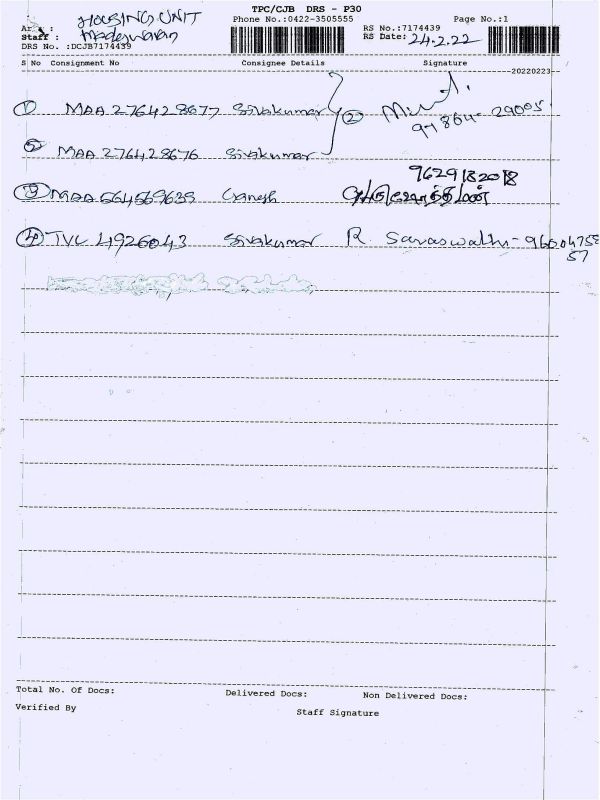 TPC/CJB DRS - P30
HOUSING UNIT
Phone No.:0422-3505555
Page No.:1
Staff :
RS No.:7174439
RS Date: 24.2.22
DRS No. :DCJB7174439
S No Consignment No Consignee Details Signature
20220223
① MAA 276428677 Sivakumar
(2)
MAA 276428676 Sivakumar
9629182018
③ MAA 564569639 Ganesh
④ TVC 4926043 Sivakumar R. Saraswathi - 96004758
57
Total No. Of Docs: Delivered Docs: Non Delivered Docs:
Verified By Staff Signature